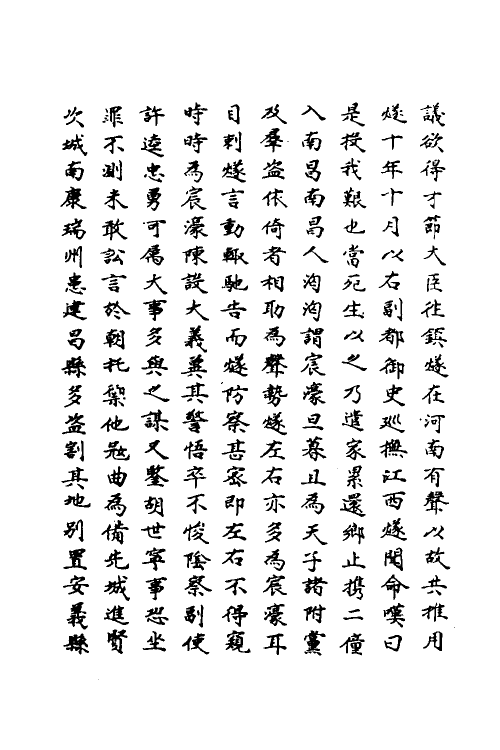 議欲得才節大臣往鎮燧在河南有聲以故共推用
燧十年十月以右副都御史巡撫江西燧聞命嘆曰
是投我艱也當死生以之乃遣家累還鄉止携二僮
入南昌南昌人洶洶謂宸濠旦暮且為天子諸附黨
及羣盗依倚者相助為聲勢燧左右亦多為宸濠耳
目刺燧言動輒馳告而燧防察甚宻即左右不得窺
時時為宸濠陳設大義冀其警悟卒不悛陰察副使
許逵忠勇可属大事多與之謀又鑒胡世寧事恐坐
罪不測未敢訟言於朝托禦他冦曲為備先城進賢
次城南康瑞州患建昌縣多盗割其地别置安義縣